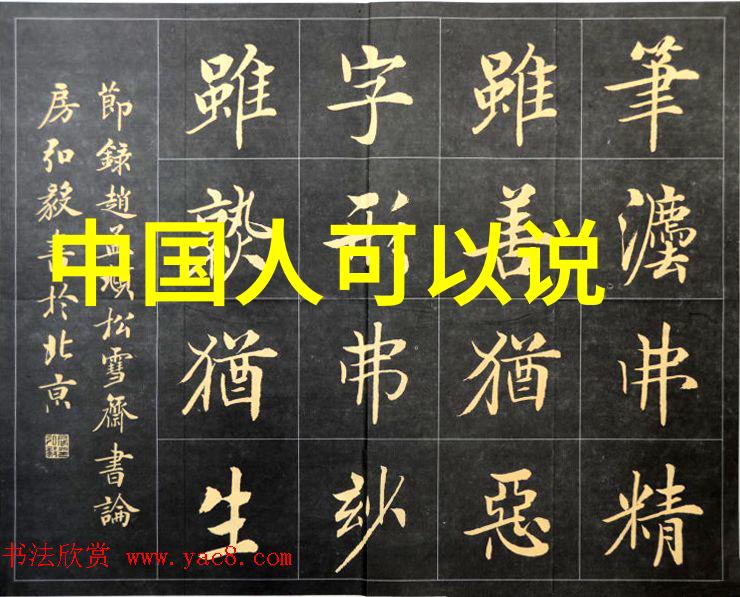 中国人可以说
筆灋弗精
雖善猶惡
字形弗玅
雖熟猶生
節錄趙孟頫松雪齋書論
房弘毅書於北亰
书法欣赏 www.yac8.com